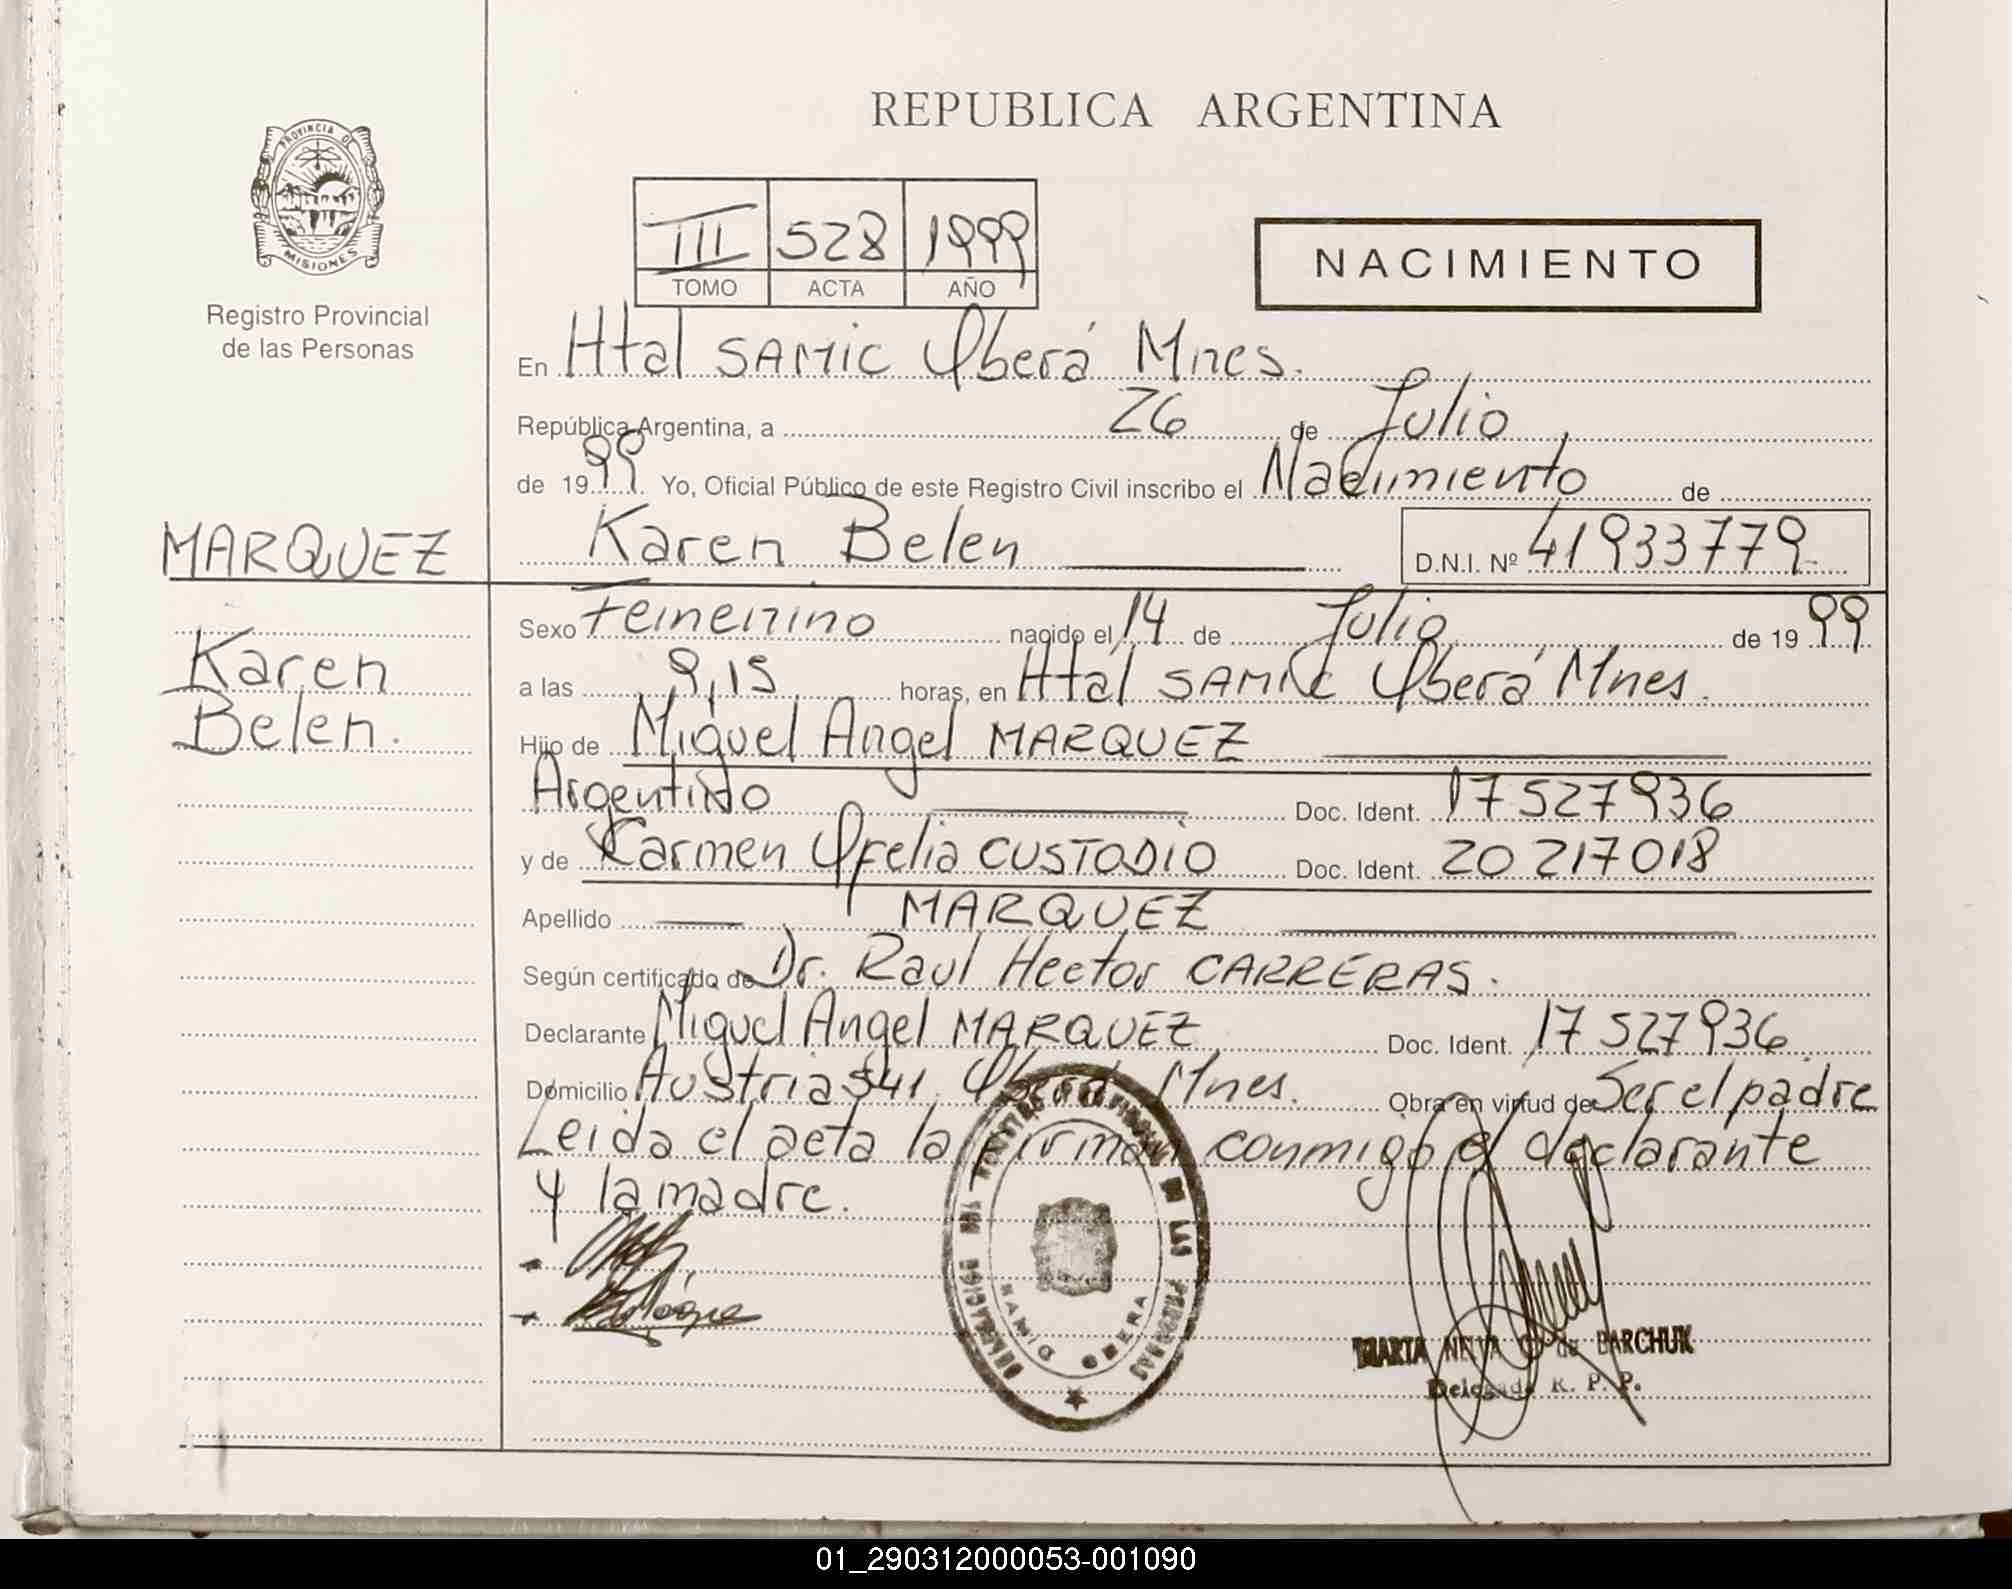 REPUBLICA ARGENTINA
PROVINCIA DE
MISIONES
Registro Provincial
de las Personas
III 528 1999
TOMO ACTA AÑO
NACIMIENTO
En Htal SAMIC Oberá Mnes.
República Argentina, a 26 de Julio
de 1999 Yo, Oficial Público de este Registro Civil inscribo el Nacimiento de
MARQUEZ
Karen Belen D.N.I. Nº 41933779
Karen
Belen.
Sexo Femenino nacido el 14 de Julio de 1999
a las 9,15 horas, en Htal SAMIC Oberá Mnes.
Hijo de Miguel Angel MARQUEZ
Argentino Doc. Ident. 17527936
y de Karmen Ofelia CUSTODIO Doc. Ident. 20217018
Apellido MARQUEZ
Según certificado de Dr. Raul Hector CARRERAS.
Declarante Miguel Angel MARQUEZ Doc. Ident. 17527936
Domicilio Austria 541. Oberá Mnes. Obra en virtud de Ser el padre
Leida el acta la firman conmigo el declarante
y la madre.
DE LAS PERSONAS
SAMIC OBERA
MARTA de BARCHUK
Delegada R. P. P.
01_290312000053-001090